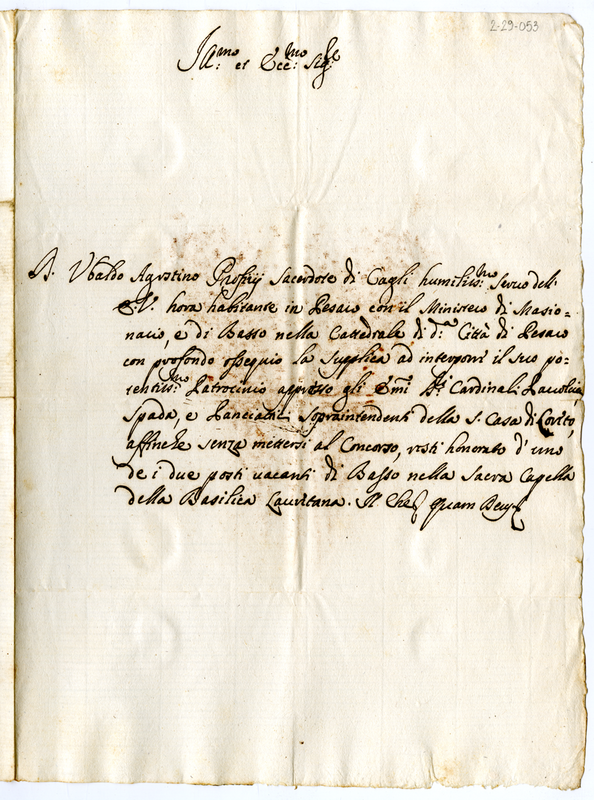 2-29-053
Ill:mo et Ecc:mo Sig:re
D. Ubaldo Agostino Sacerdote di Cagli humiliss:mo Servo dell'
E.V. hora habitante in Pesaro con il Ministero di Mansio=
nario, e di Basso nella Cattedrale di d.a Città di Pesaro
con profondo ossequio la supplica ad interporre il suo po=
tentiss:mo Patrocinio appresso gli Emi SS:ri Cardinali Paulucci,
Spada, e Panciatici Sopraintendenti della S. Casa di Loreto,
affinche senza mettersi al Concorso, resti honorato d'uno
de i due posti vacanti di Basso nella Sacra Capella
della Basilica Lauretana. Il che quam Deus